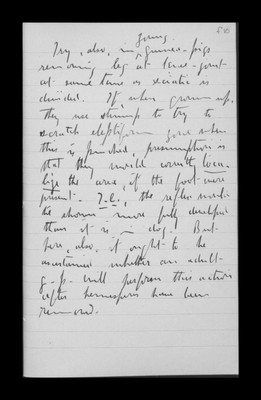 50
young
Try, also, in guinea-pigs
removing leg at knee-joint
at same time as sciatic is
divided. If, when grown up,
they use stump to try to
scratch epileptiform zone when
this is pinched, presumption is
that they would correctly loca-
lize the area, if the foot were
present. I.e., the reflex would
be shown more fully developed
than it is in dog. But
here, also, it ought to be
ascertained whether an adult
g-p will perform this action
after hemispheres have been
removed.